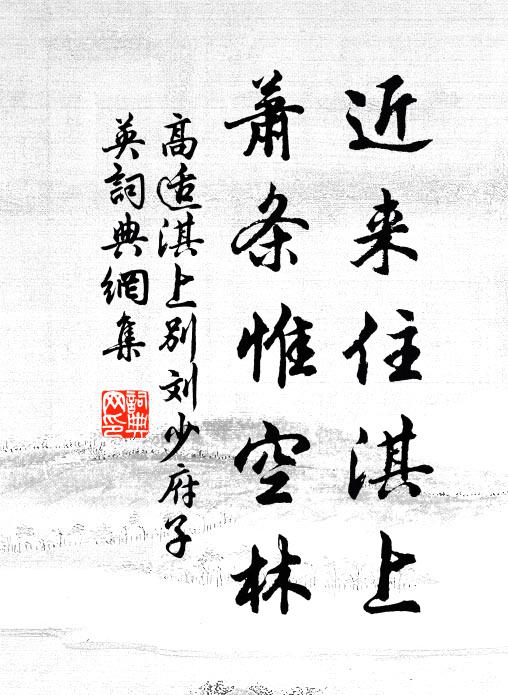 近来住淇上
萧条惟空林
高适淇上别刘少府子
英詞典網集
詞典
网印